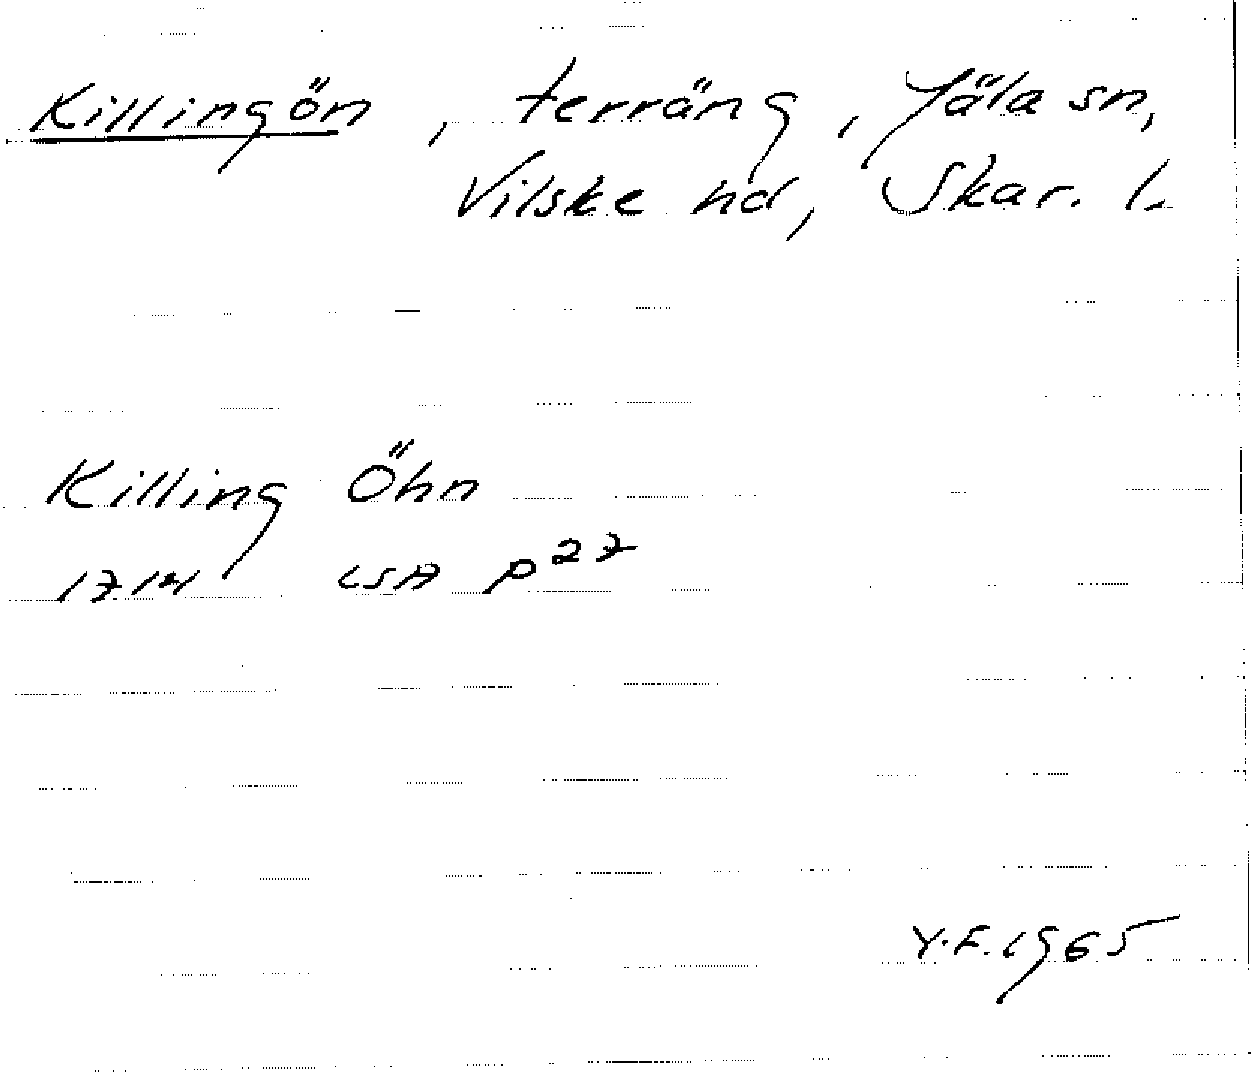 Killingön, terräng, Jäla sn,
Vilske hd, Skar. l.
Killing Öhn
1714 LSA P27
Y.F. 1965